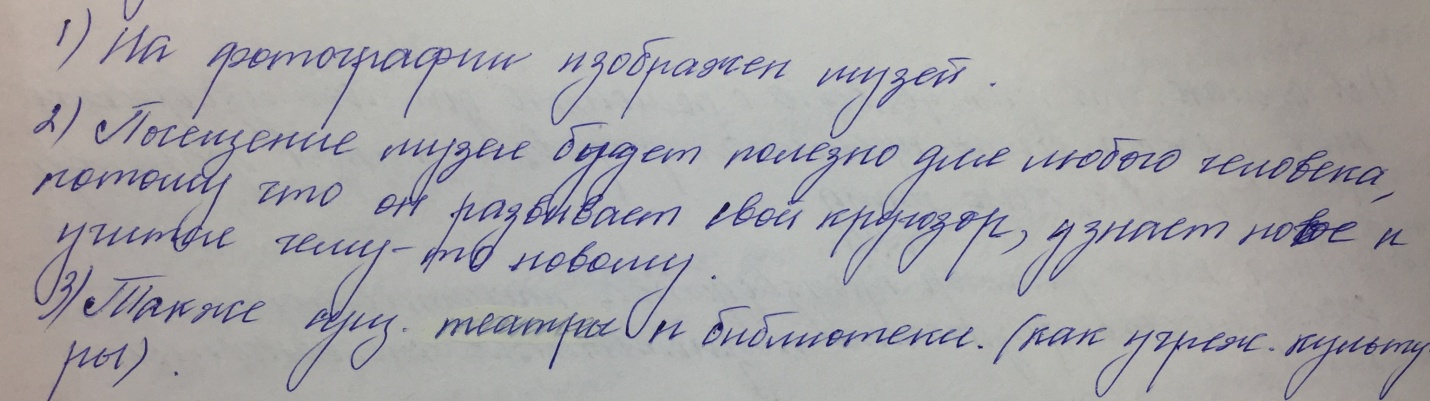 1) На фотографии изображен музей.
2) Посещение музея будет полезно для любого человека,
потому что он развивает свой кругозор, узнает новое и
учится чему-то новому.
3) Также сущ. театры и библиотеки. (как учреж. культу-
ры).